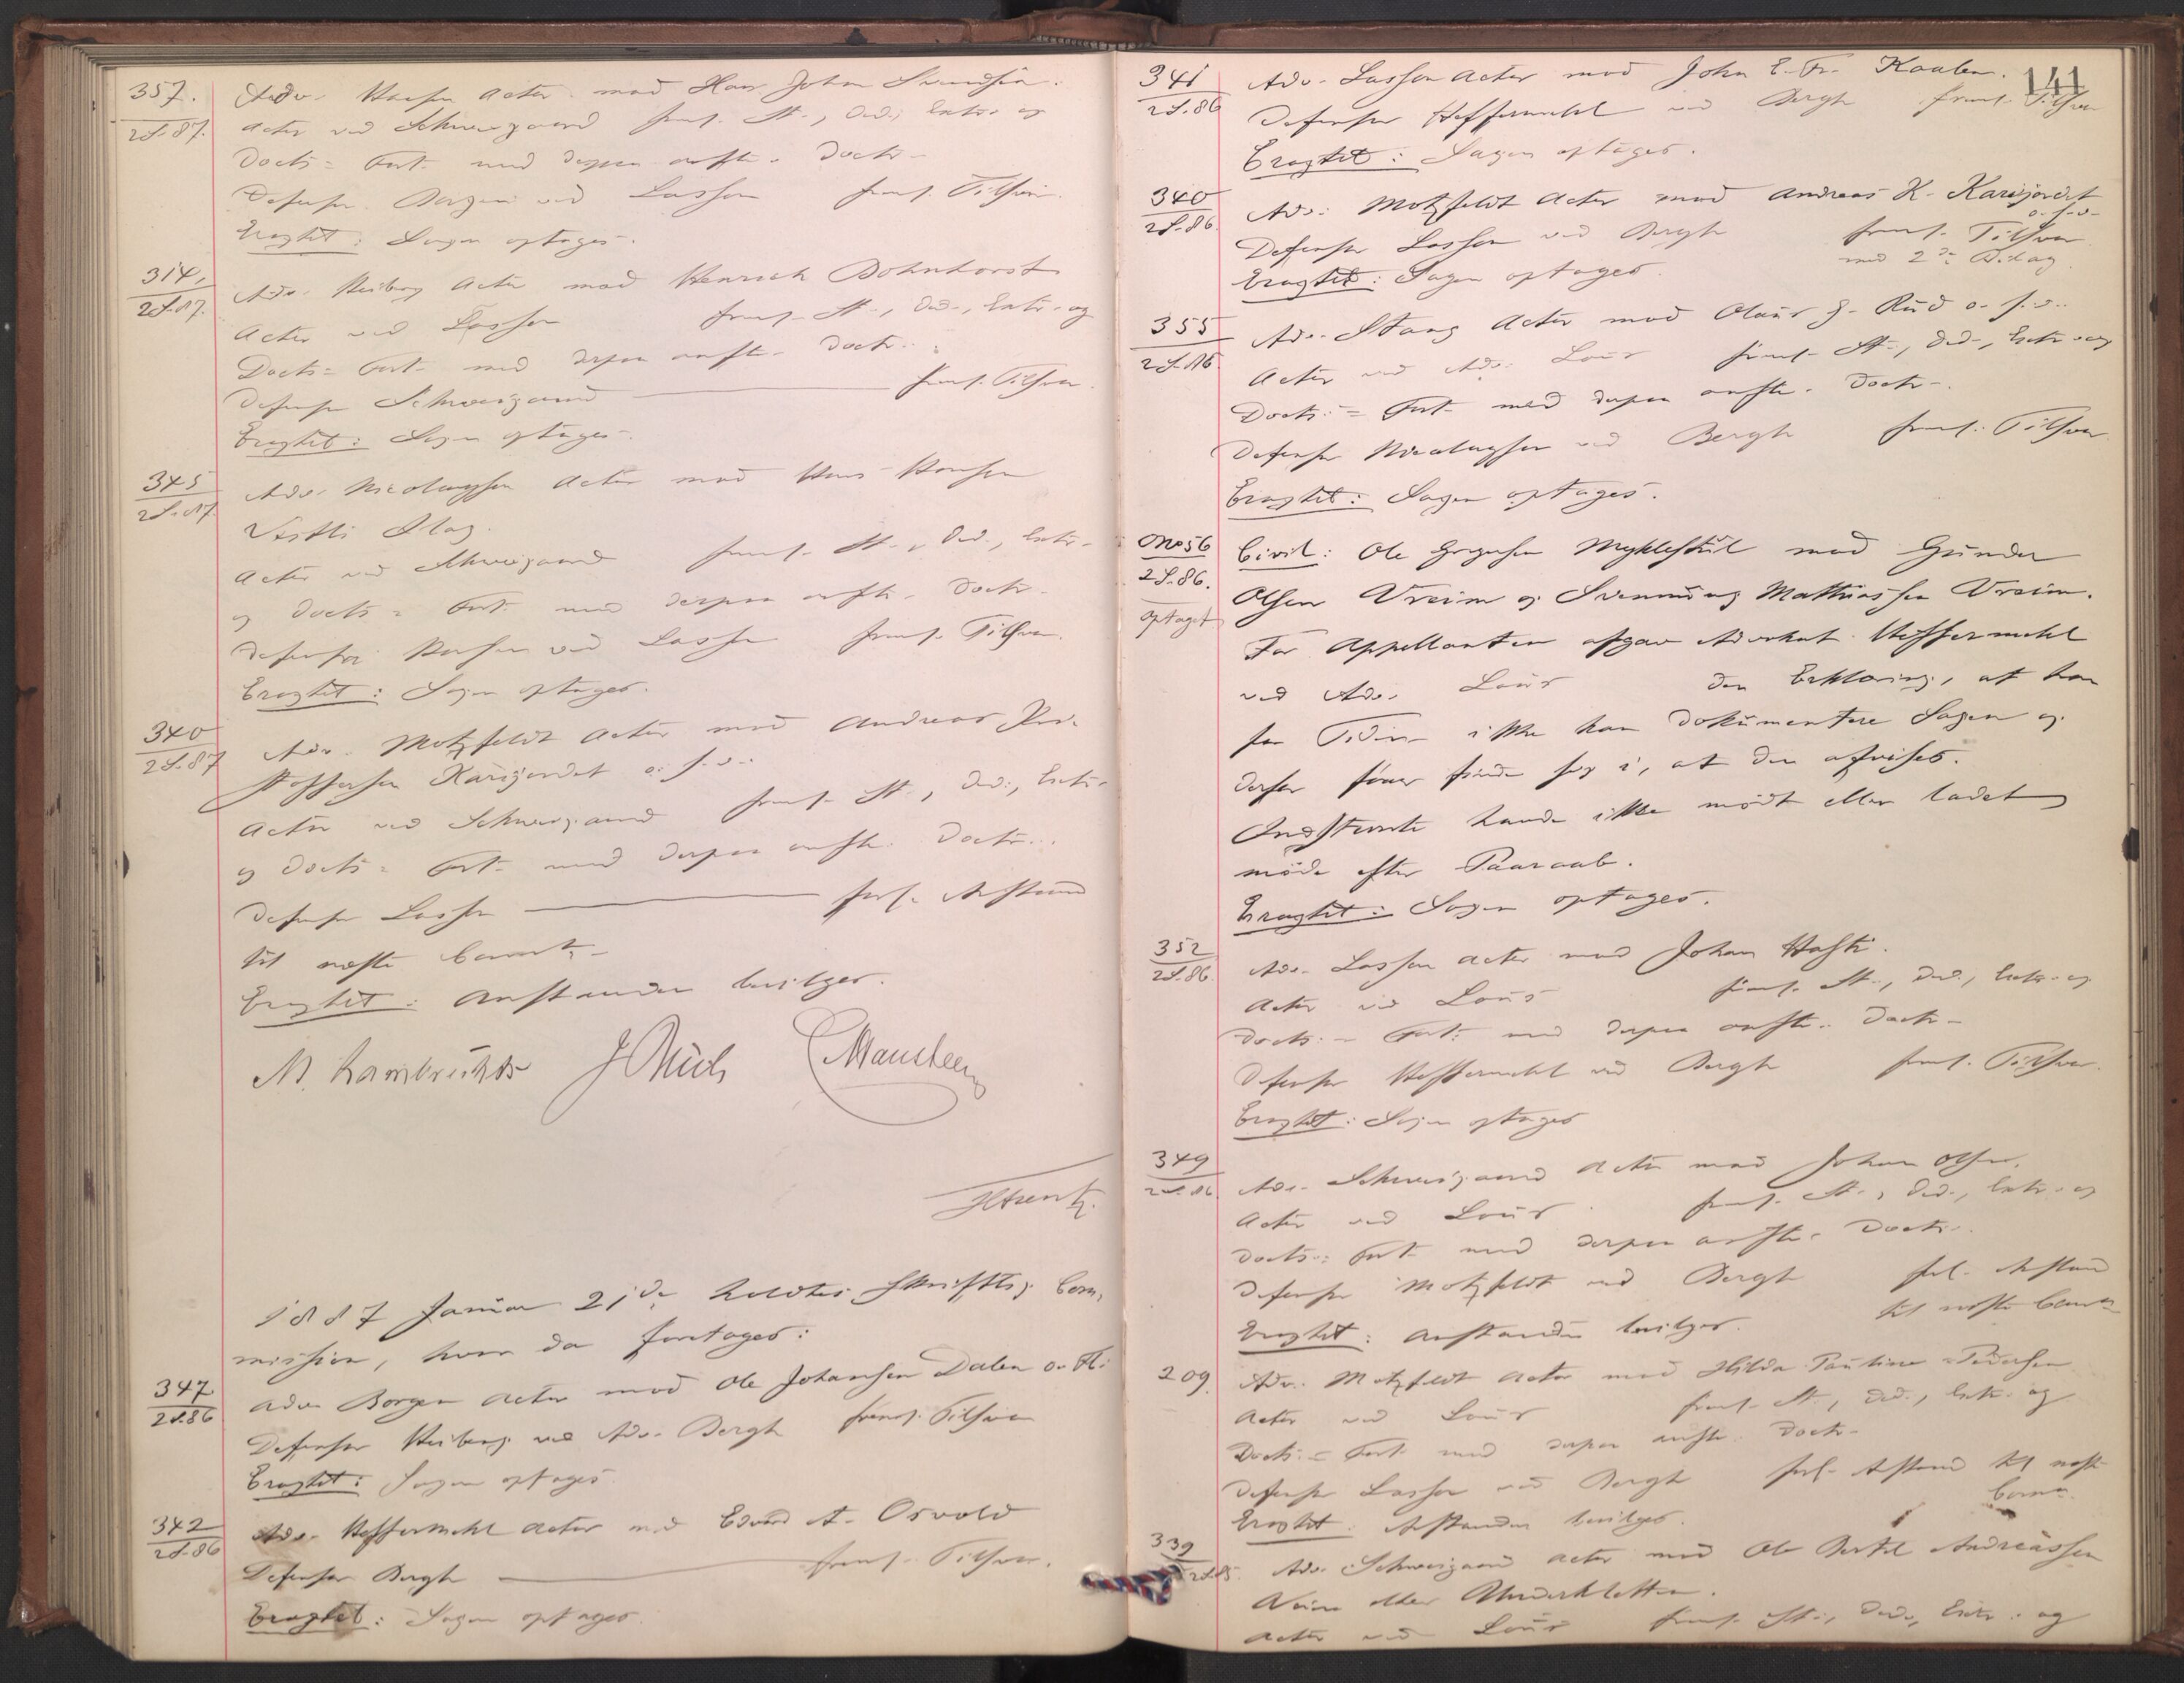 357.
2S.87.
Adv. Hansen Actor mod Hans Johan Svendsen.
Actor ved Schweigaard freml. St., Ded., Extr. og
Docts = Fort. med derpaa anft. Doctr.
Defensor Borgen ved Lasson freml. Tilsvar.
Eragtet: Sagen optages.
314,
2S.87.
Adv. Heiberg Actor mod Henrich Bohnhorst
Actor ved Lasson freml. St., Ded., Extr. og
Docts = Fort. med derpaa anft. Doctr.
Defensor Schweigaard freml. Tilsvar.
Eragtet: Sagen optages.
345
2S.87.
Adv. Nicolaysen Actor mod Hans Hansen
Actor ved Schweigaard freml. St., Ded., Extr.
og Docts = Fort. med derpaa anft. Doctr.
Defensor Hansen ved Lasson freml. Tilsvar.
Eragtet: Sagen optages.
340
2S.87
Adv. Motzfeldt Actor mod Andreas Kri-
stoffersen Karisjordet o. s. v.
Actor ved Schweigaard freml. St., Ded., Extr.
og Docts = Fort. med derpaa anft. Doctr.
Defensor Lasson forl. Anstand
til næste Comm.
Eragtet: Anstanden bevilges.
M. Lambrechts JThich CHansteen
1887 Januar 21de holdtes skriftlig Com-
mission, hvor da foretages:
347
2S.86
Adv. Borgen Actor mod Ole Johansen Dalen o. Fl.
Defensor Heiberg ved Adv. Bergh freml. Tilsvar
Eragtet: Sagen optages.
342
2S.86
Adv. Heffermehl Actor mod Edvard A. Osvold
Defensor Bergh freml. Tilsvar.
Eragtet: Sagen optages.
141
341
2S.86
Adv. Lasson Actor mod John E. Fr. Kaalen.
Defensor Heffermehl ved Bergh freml. Tilsvar
Eragtet: Sagen optages.
340
2S.86.
Adv. Motzfeldt Actor mod Andreas K. Karisjordet
o. s. v.
Defensor Lasson ved Bergh freml. Tilsvar
med 2de Bilag
Eragtet: Sagen optages.
355
2S.86
Adv. Stang Actor mod Olaus J. Rud o. s. v.
Actor ved Adv. Lous freml. St., Ded., Extr. og
Docts = Fort. med derpaa anft. Doctr.
Defensor Nicolaysen ved Bergh freml. Tilsvar
Eragtet: Sagen optages.
No 56
2S.86.
optaget
Civil: Ole Gregersen Myklestul mod Gunder
Olsen Vreim og Svennung Mathiassen Vreim.
For Appellanten afgav Advokat Heffermehl
ved Adv. Lous den Erklæring, at han
for Tiden ikke kan dokumentere Sagen og
derfor finde sig i, at den afvises.
Indstevnte havde ikke mødt eller ladet
møde efter Paaraab.
Eragtet: Sagen optages.
352
2S.86.
Adv. Lasson Actor mod Johan
Actor ved Lous freml. St., Ded., Extr. og
Docts = Fort. med derpaa anft. Doctr.
Defensor Heffermehl ved Bergh freml. Tilsvar.
Eragtet: Sagen optages
349
2S.86
Adv. Schweigaard Actor mod Johan Olsen.
Actor ved Lous freml. St., Ded., Extr. og
Docts = Fort. med derpaa anft. Doctr.
Defensor Motzfeldt ved Bergh forl. Anstand
til næste Comm.
Eragtet: Anstanden bevilges.
209.
Adv. Motzfeldt Actor mod Hilda Pauline Pedersen
Actor ved Lous freml. St., Ded., Extr. og
Docts = Fort. med derpaa anft. Doctr.
Defensor Lasson ved Bergh forl. Anstand til næste
Comm.
Eragtet: Anstanden bevilges.
339
2S.85.
Adv. Schweigaard Actor mod Ole Bertel Andreassen
eller
Actor ved Lous freml. St., Ded., Extr. og